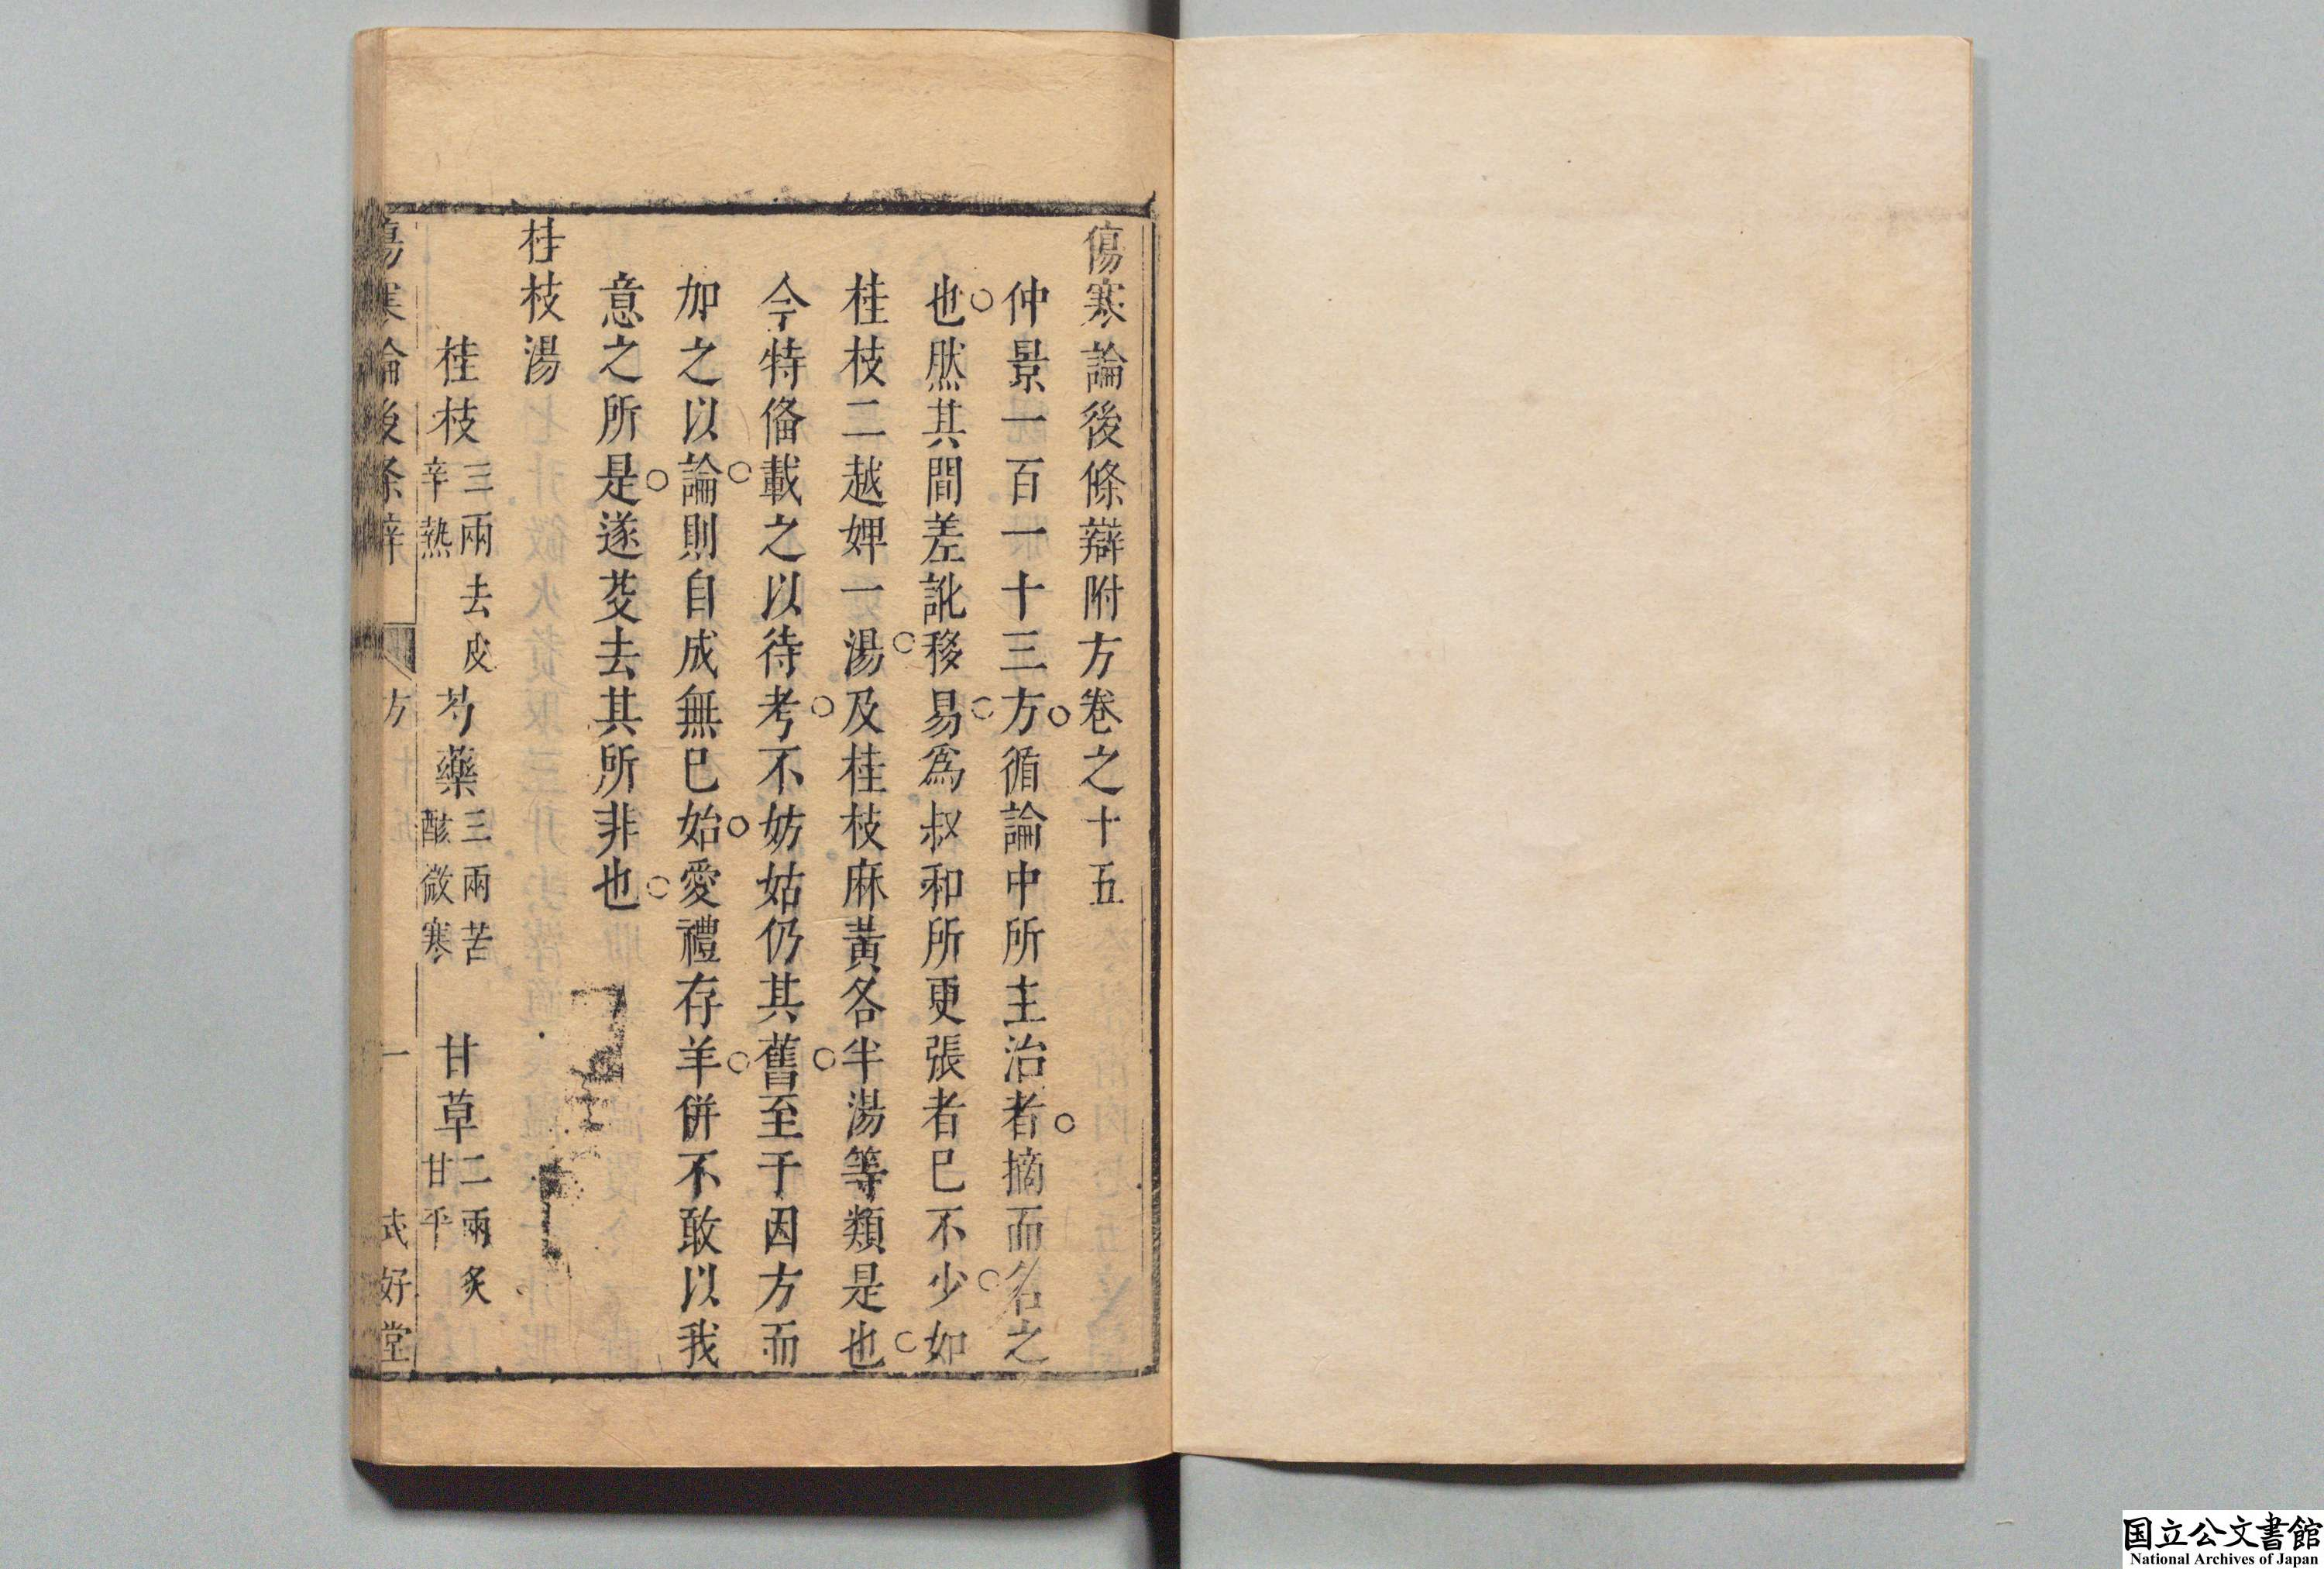 傷寒論後條辯附方卷之十五
仲景一百一十三方。循論中所主治者。摘而名之
也。然其間差訛移易。爲叔和所更張者已不少。如
桂枝二越婢一湯。及桂枝麻黃各半湯等類是也。
今特俻載之以待考。不妨姑仍其舊。至于因方而
加之以論。則自成無已始。愛禮存羊。併不敢以我
意之所是。遂芟去其所非也。
桂枝湯
桂枝三兩去皮辛熱 芍藥三兩苦酸微寒 甘草二兩炙甘平
傷寒論後條辯 方 一 式好堂
国立公文書館
National Archives of Japan